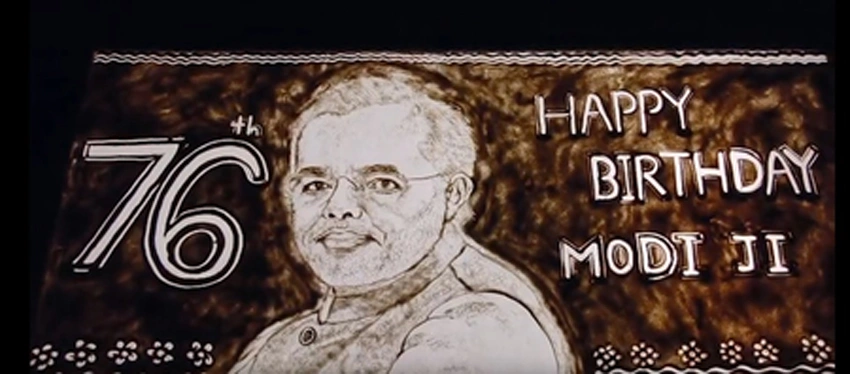 76th
HAPPY
BIRTHDAY
MODI JI